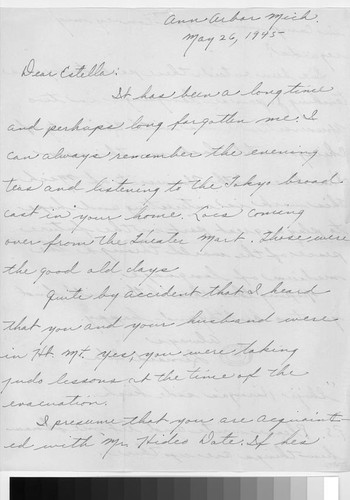 Ann Arbor Mich.
May 26, 1945
Dear Estella:
It has been a long time
and perhaps long forgotten me. I
can always remember the evening
teas and listening to the Tokyo broad
cast in your home. Lois' coming
over from the Theater Mart. Those were
the good old days
Quite by accident that I heard
that you and your husband were
in Ht. Mt. Yes, you were taking
judo lessons at the time of the
evacuation.
I presume that you are acquaint-
ed with Mr. Hideo Date. If his